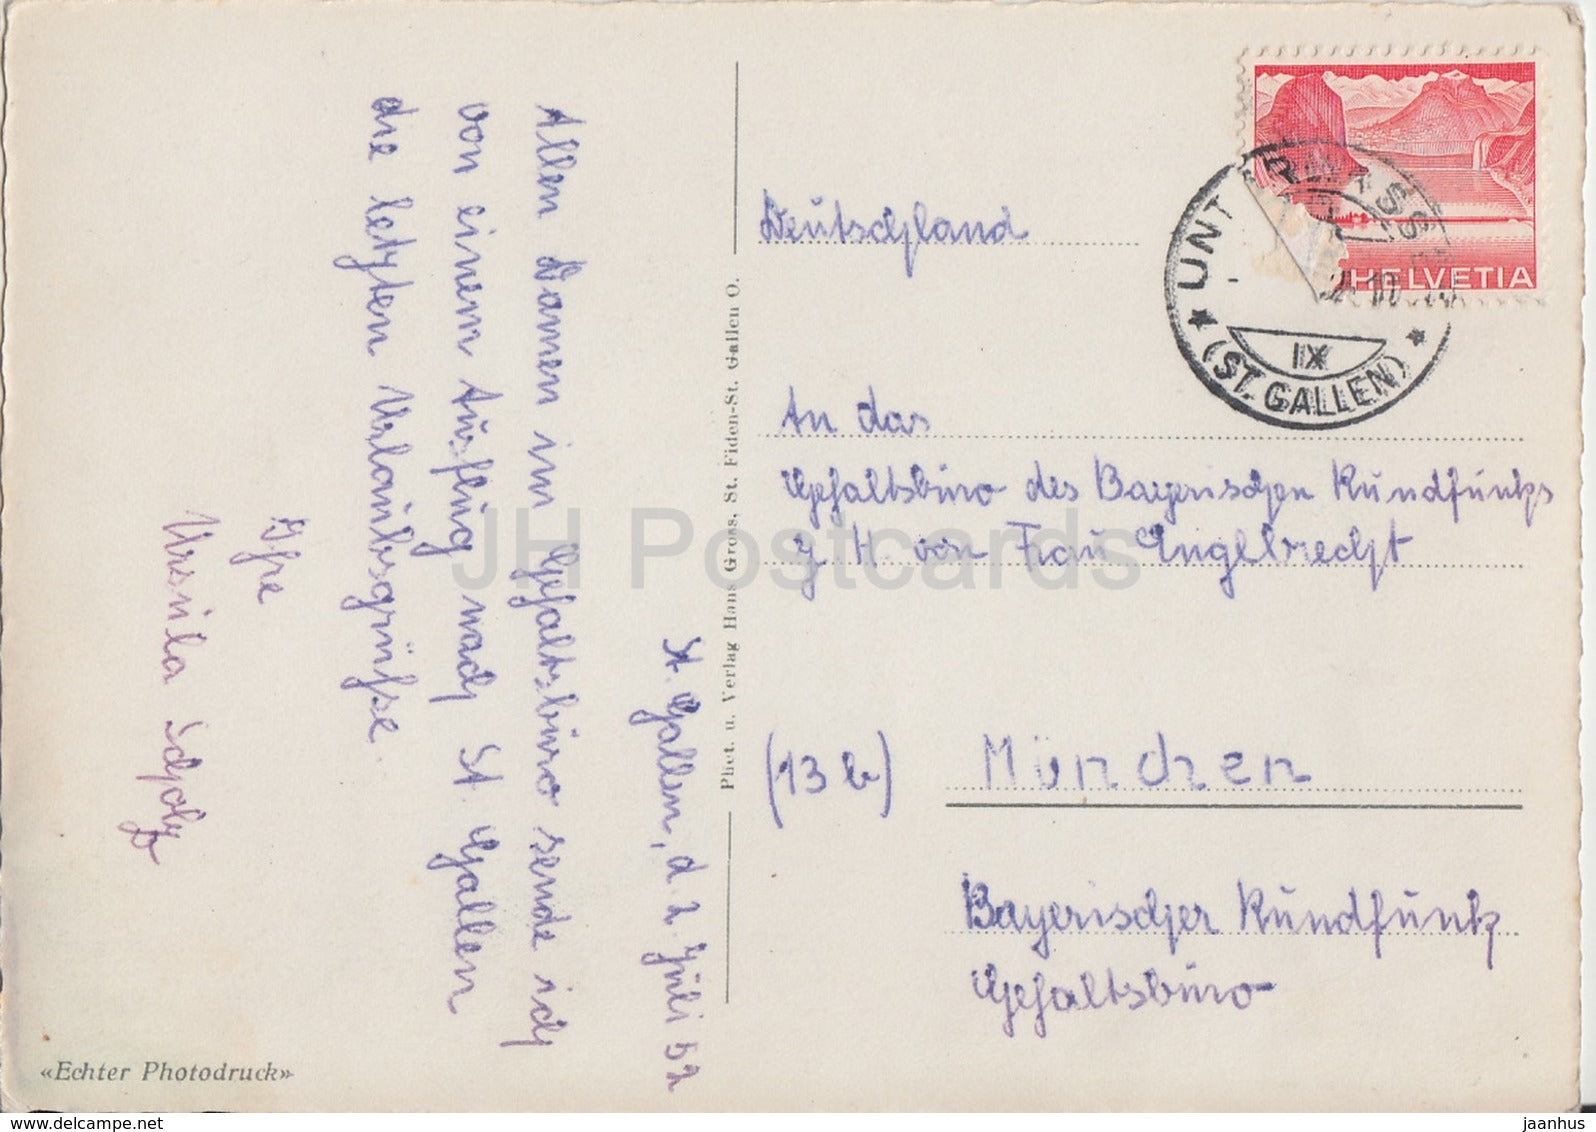 St. Gallen, d. 2. Juli 52
Allen Damen im Gehaltsbüro sende ich
von einem Ausflug nach St. Gallen
die letzten Urlaubsgrüße.
Ihre
Ursula Scholz
«Echter Photodruck»
Phot. u. Verlag Hans Gross, St. Fiden-St. Gallen O.
HELVETIA
(ST. GALLEN)
IX
Deutschland
An das
Gehaltsbüro des Bayerischen Rundfunks
z. H. von Frau Englbrecht
(13 b) München
Bayerischer Rundfunk
Gehaltsbüro
JH Postcards
www.delcampe.net
jaanhus